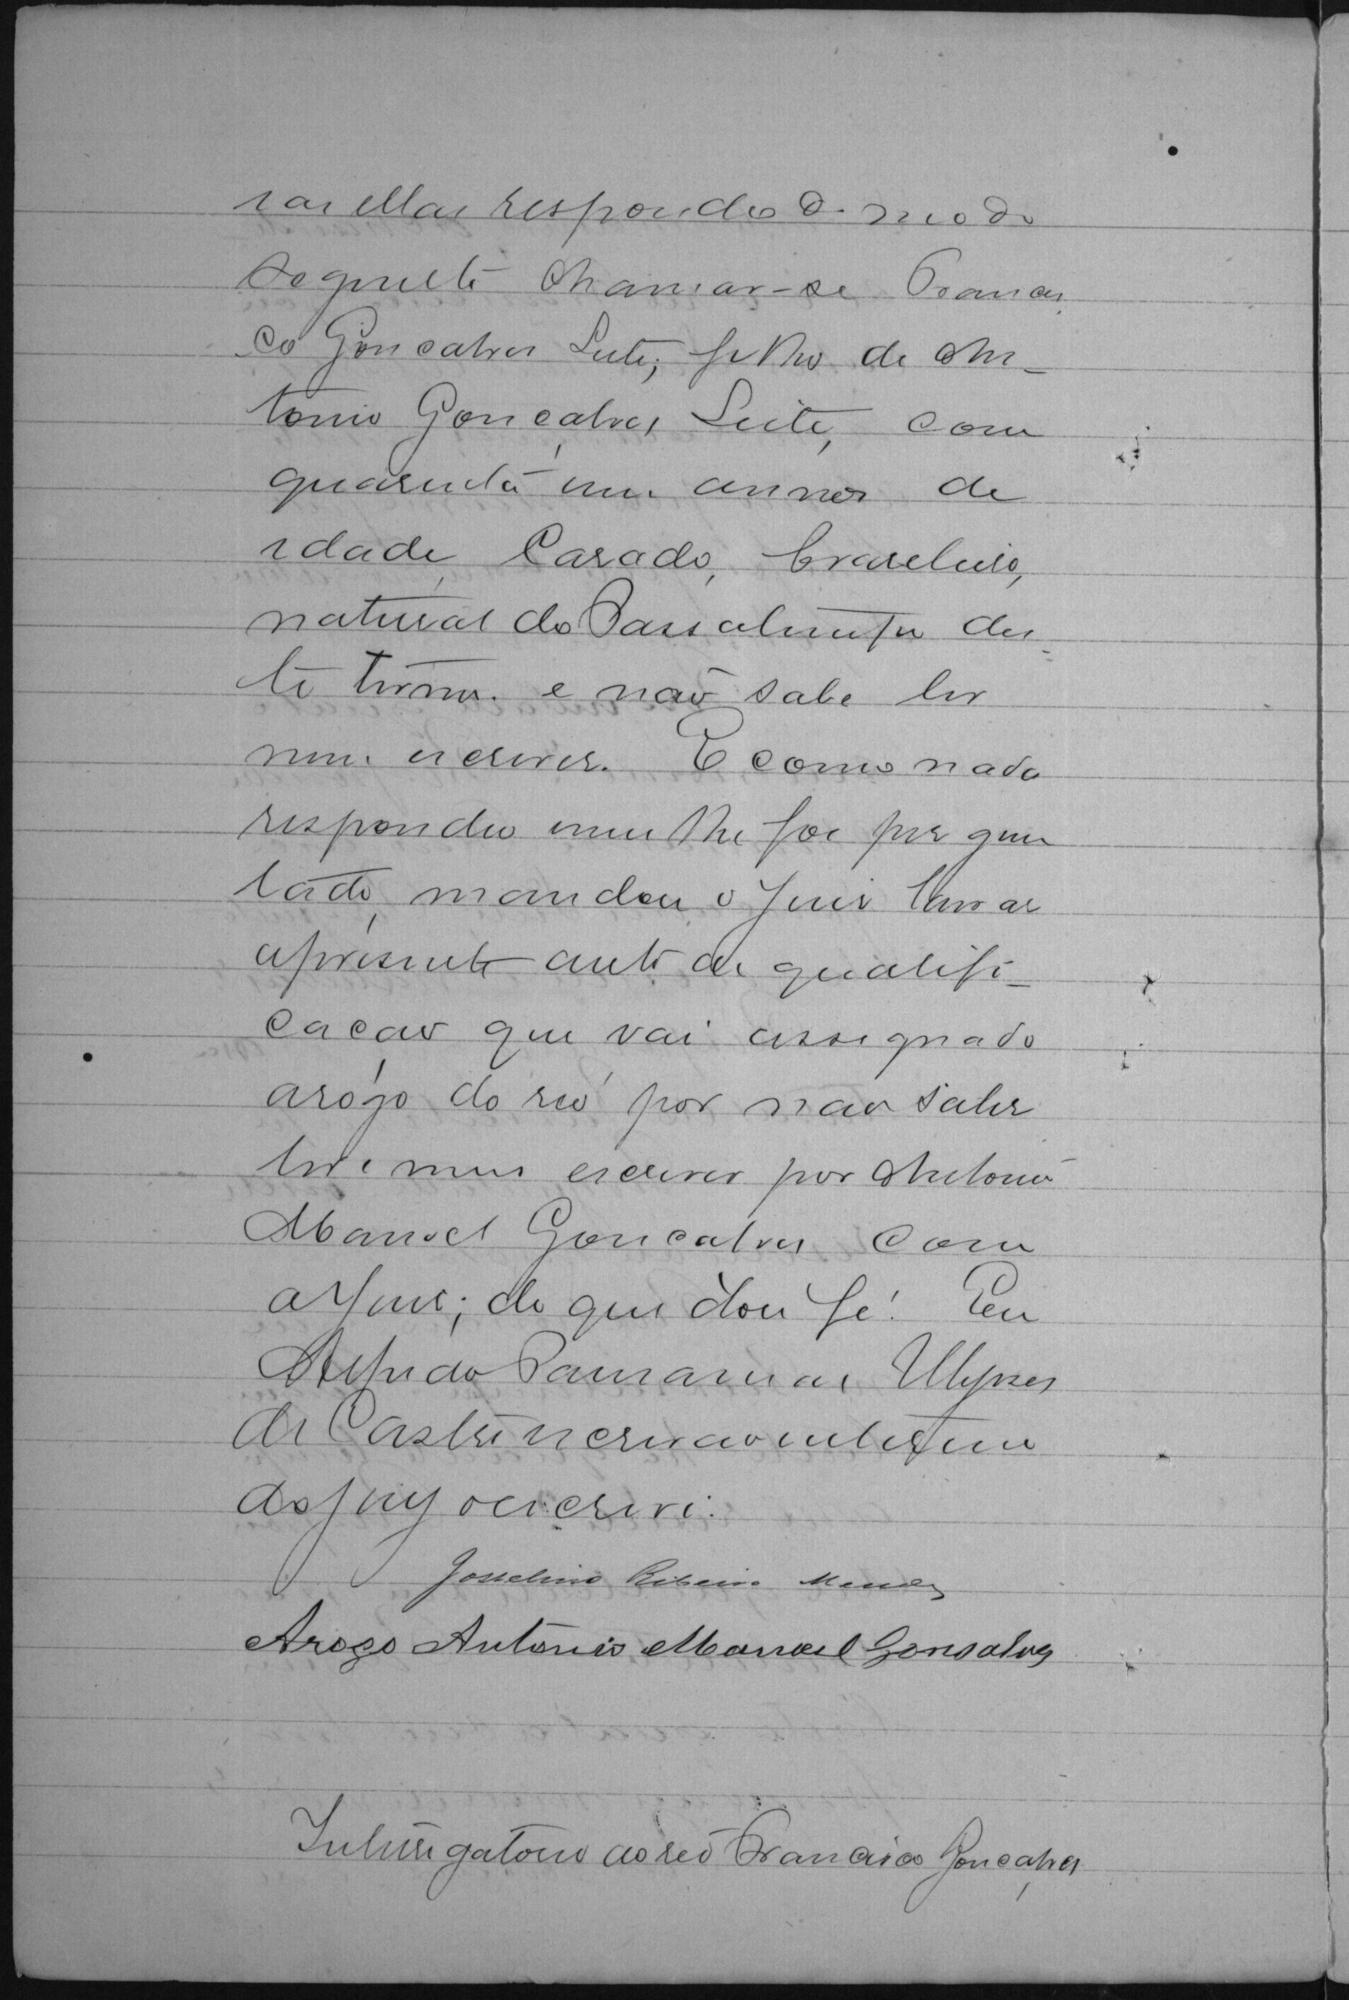 ellas respondeo do modo
seguinte chamar-se Francis
co Gonçalves Leite, filho de An-
tonio Gonçalves Leite, com
quarenta um annos de
idade, Casado, brasileiro,
natural do des-
te termo. e não sabe ler
nem escrever. E como nada
respondeo nem lhe foi pergun
tado, mandou o Juis lavrar
apresente auto de qualifi-
cacao que vai assignado
arogo do reo por nao saber
ler e nem escrever por Antonio
Manoel Goncalves com
o Juis; do que dou fé. Eu
Alfredo Ulysses
de Castro escrivao interino
do jury o escrevi.
Josselino Ribeiro Mendes
Arogo Antonio Manoel Gonsalves
Interrogatorio ao reo Francisco Gonçalves